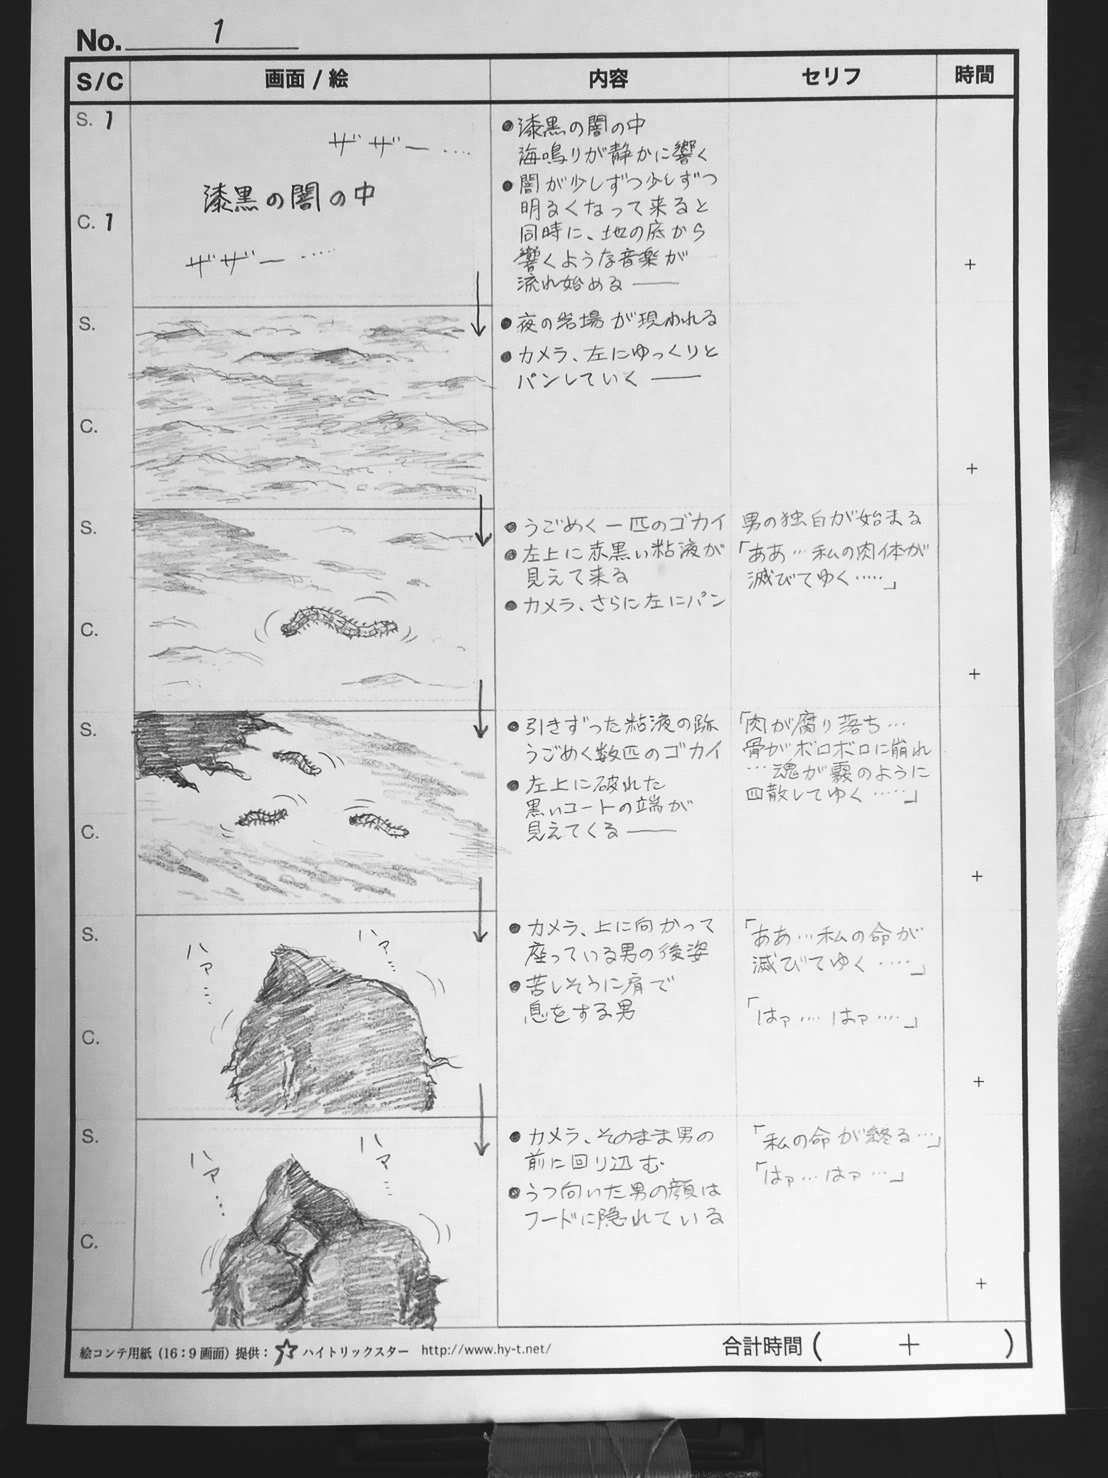 No. 1
S/C 画面 / 絵 内容 セリフ 時間
S. 1
C. 1
ザ ザー ‥‥
漆黒の闇の中
ザザー ‥‥
●漆黒の闇の中
海鳴りが静かに響く
●闇が少しずつ少しずつ
明るくなって来ると
同時に、地の底から
響くような音楽が
流れ始める ——
+
S.
C.
●夜の岩場が現われる
●カメラ、左にゆっくりと
パンしていく ——
+
S.
C.
●うごめく一匹のゴカイ
●左上に赤黒い粘液が
見えて来る
●カメラ、さらに左にパン
男の独白が始まる
「ああ…私の肉体が
滅びてゆく‥‥‥」
+
S.
C.
●引きずった粘液の跡
うごめく数匹のゴカイ
●左上に破れた
黒いコートの端が
見えてくる ——
「肉が腐り落ち…
骨がボロボロに崩れ
…魂が霧のように
四散してゆく‥‥‥」
+
S.
C.
ハァ…
ハァ…
●カメラ、上に向かって
座っている男の後姿
●苦しそうに肩で
息をする男
「ああ…私の命が
滅びてゆく ‥‥」
「はァ‥‥はァ‥‥」
+
S.
C.
ハァ…
ハァ…
●カメラ、そのまま男の
前に回り込む
●うつ向いた男の顔は
フードに隠れている
「私の命が終る…」
「はァ…はァ…」
+
絵コンテ用紙（16：9 画面）提供： ハイトリックスター http://www.hy-t.net/
合計時間 ( + )